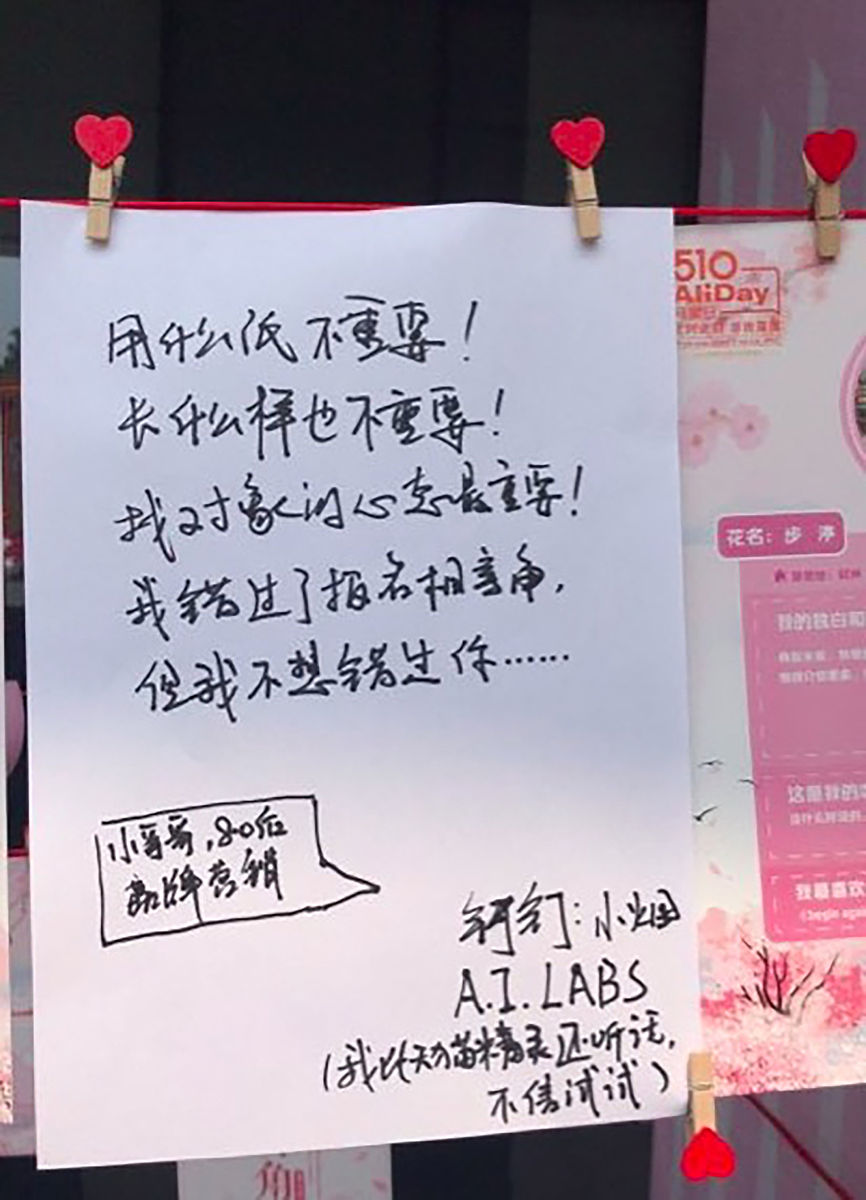 用什么纸不重要！
长什么样也不重要！
找对象的心态最重要！
我错过了报名相亲角，
但我不想错过你……
小哥哥，80后
品牌营销
钉钉：小烟
A.I.LABS
（我比天猫精灵还听话，
不信试试）
510
AliDay
花名：步 婷
我的独白和
这是我的
我最喜欢
角